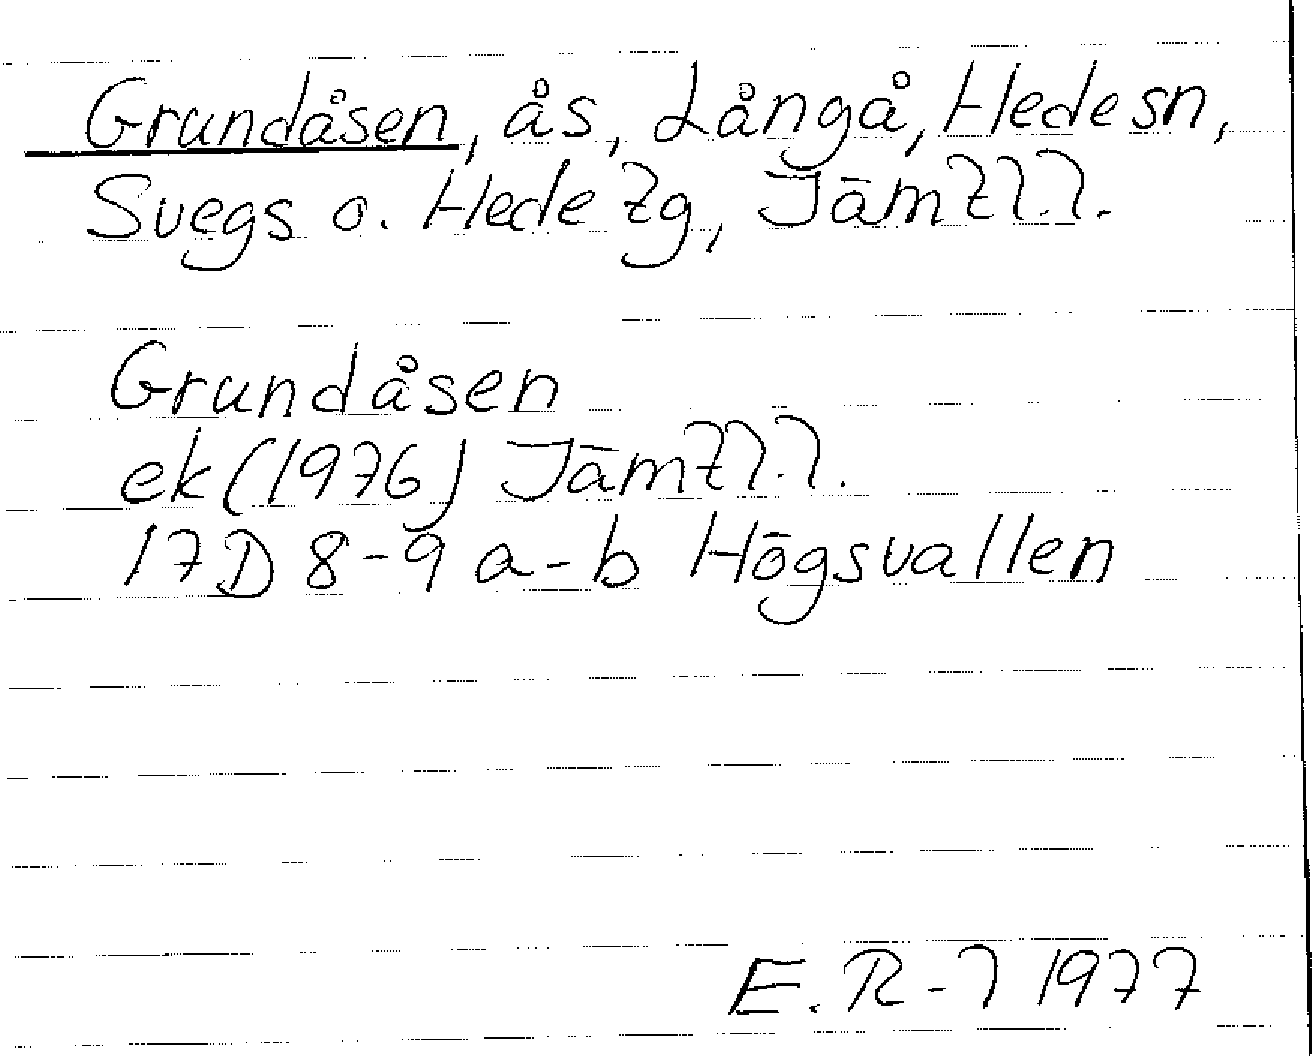 Grundåsen, ås, Långå, Hede sn,
Svegs o. Hede tg, Jämtl.l.
Grundåsen
ek (1976) Jämtl.l.
17D 8-9 a-b Högsvallen
E. R-l 1977